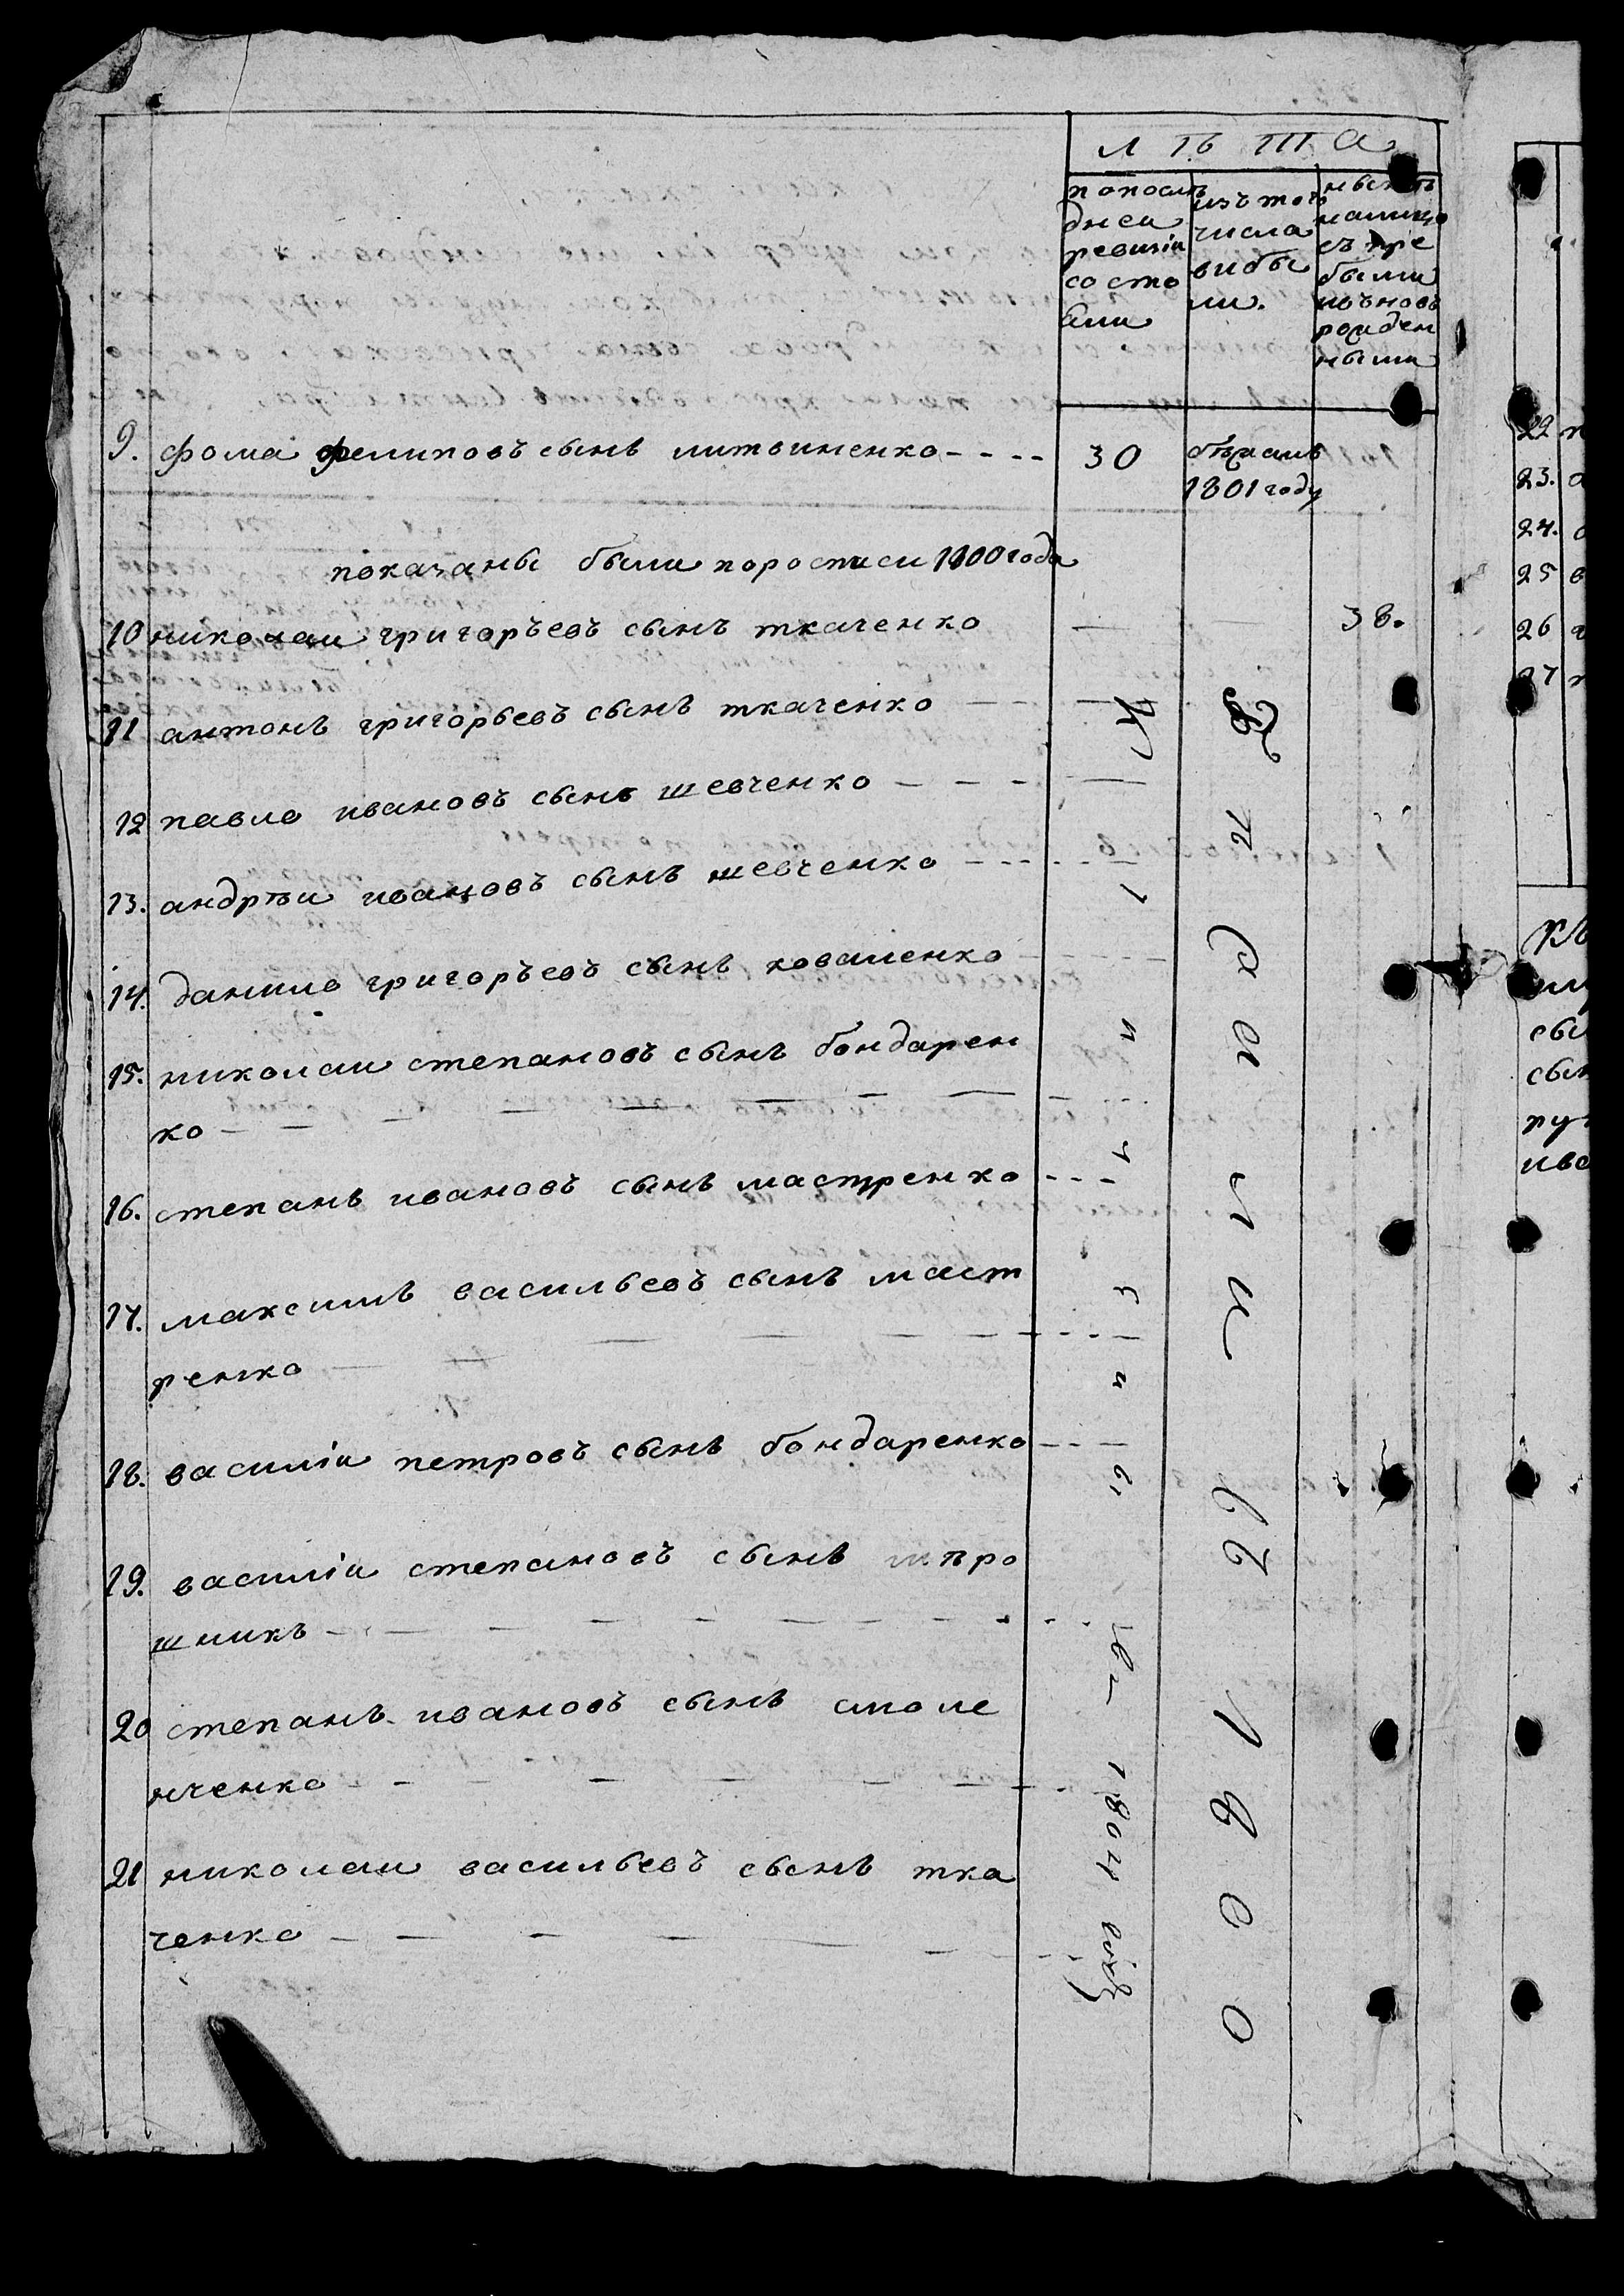 лѢТА
попослѣ
дней
ревизіи
состо
яли
изъ того
числа
выбы
ли.
нынѣ
налицо
съ при
былы
ноъновъ
рожден
ными
9. фома фелиповъ сынъ литвиненко - - - - 30 бѣжалъ
1801 году
показаны были поросписи 1800 года
10 николаи григоръевъ сынъ ткаченко — 38.
11 антонъ григорьевъ сынъ ткаченко — — —
12 павло ивановъ сынъ шевченко — — — —
13. андрѣи ивановъ сынъ шевченко - - - - -
14. данило григоръевъ сынъ коваленко - - - - -
15. николаи степановъ сынъ бондарен
ко — — — — — — —
16. степанъ ивановъ сынъ мастренко - - -
17. максимъ васильевъ сынъ маст
ренко — — — — — — —
18. василіи петровъ сынъ бондаренко - - -
19. василіи степановъ сынъ мѣро
шникъ — — — — — — —
20 степанъ ивановъ сынъ смоле
нченко — — — — — — —
21 николаи васильевъ сынъ тка
ченко — — — — — — —
1801 году
1800
22
23.
24.
25
26
27
сын
сын
ива